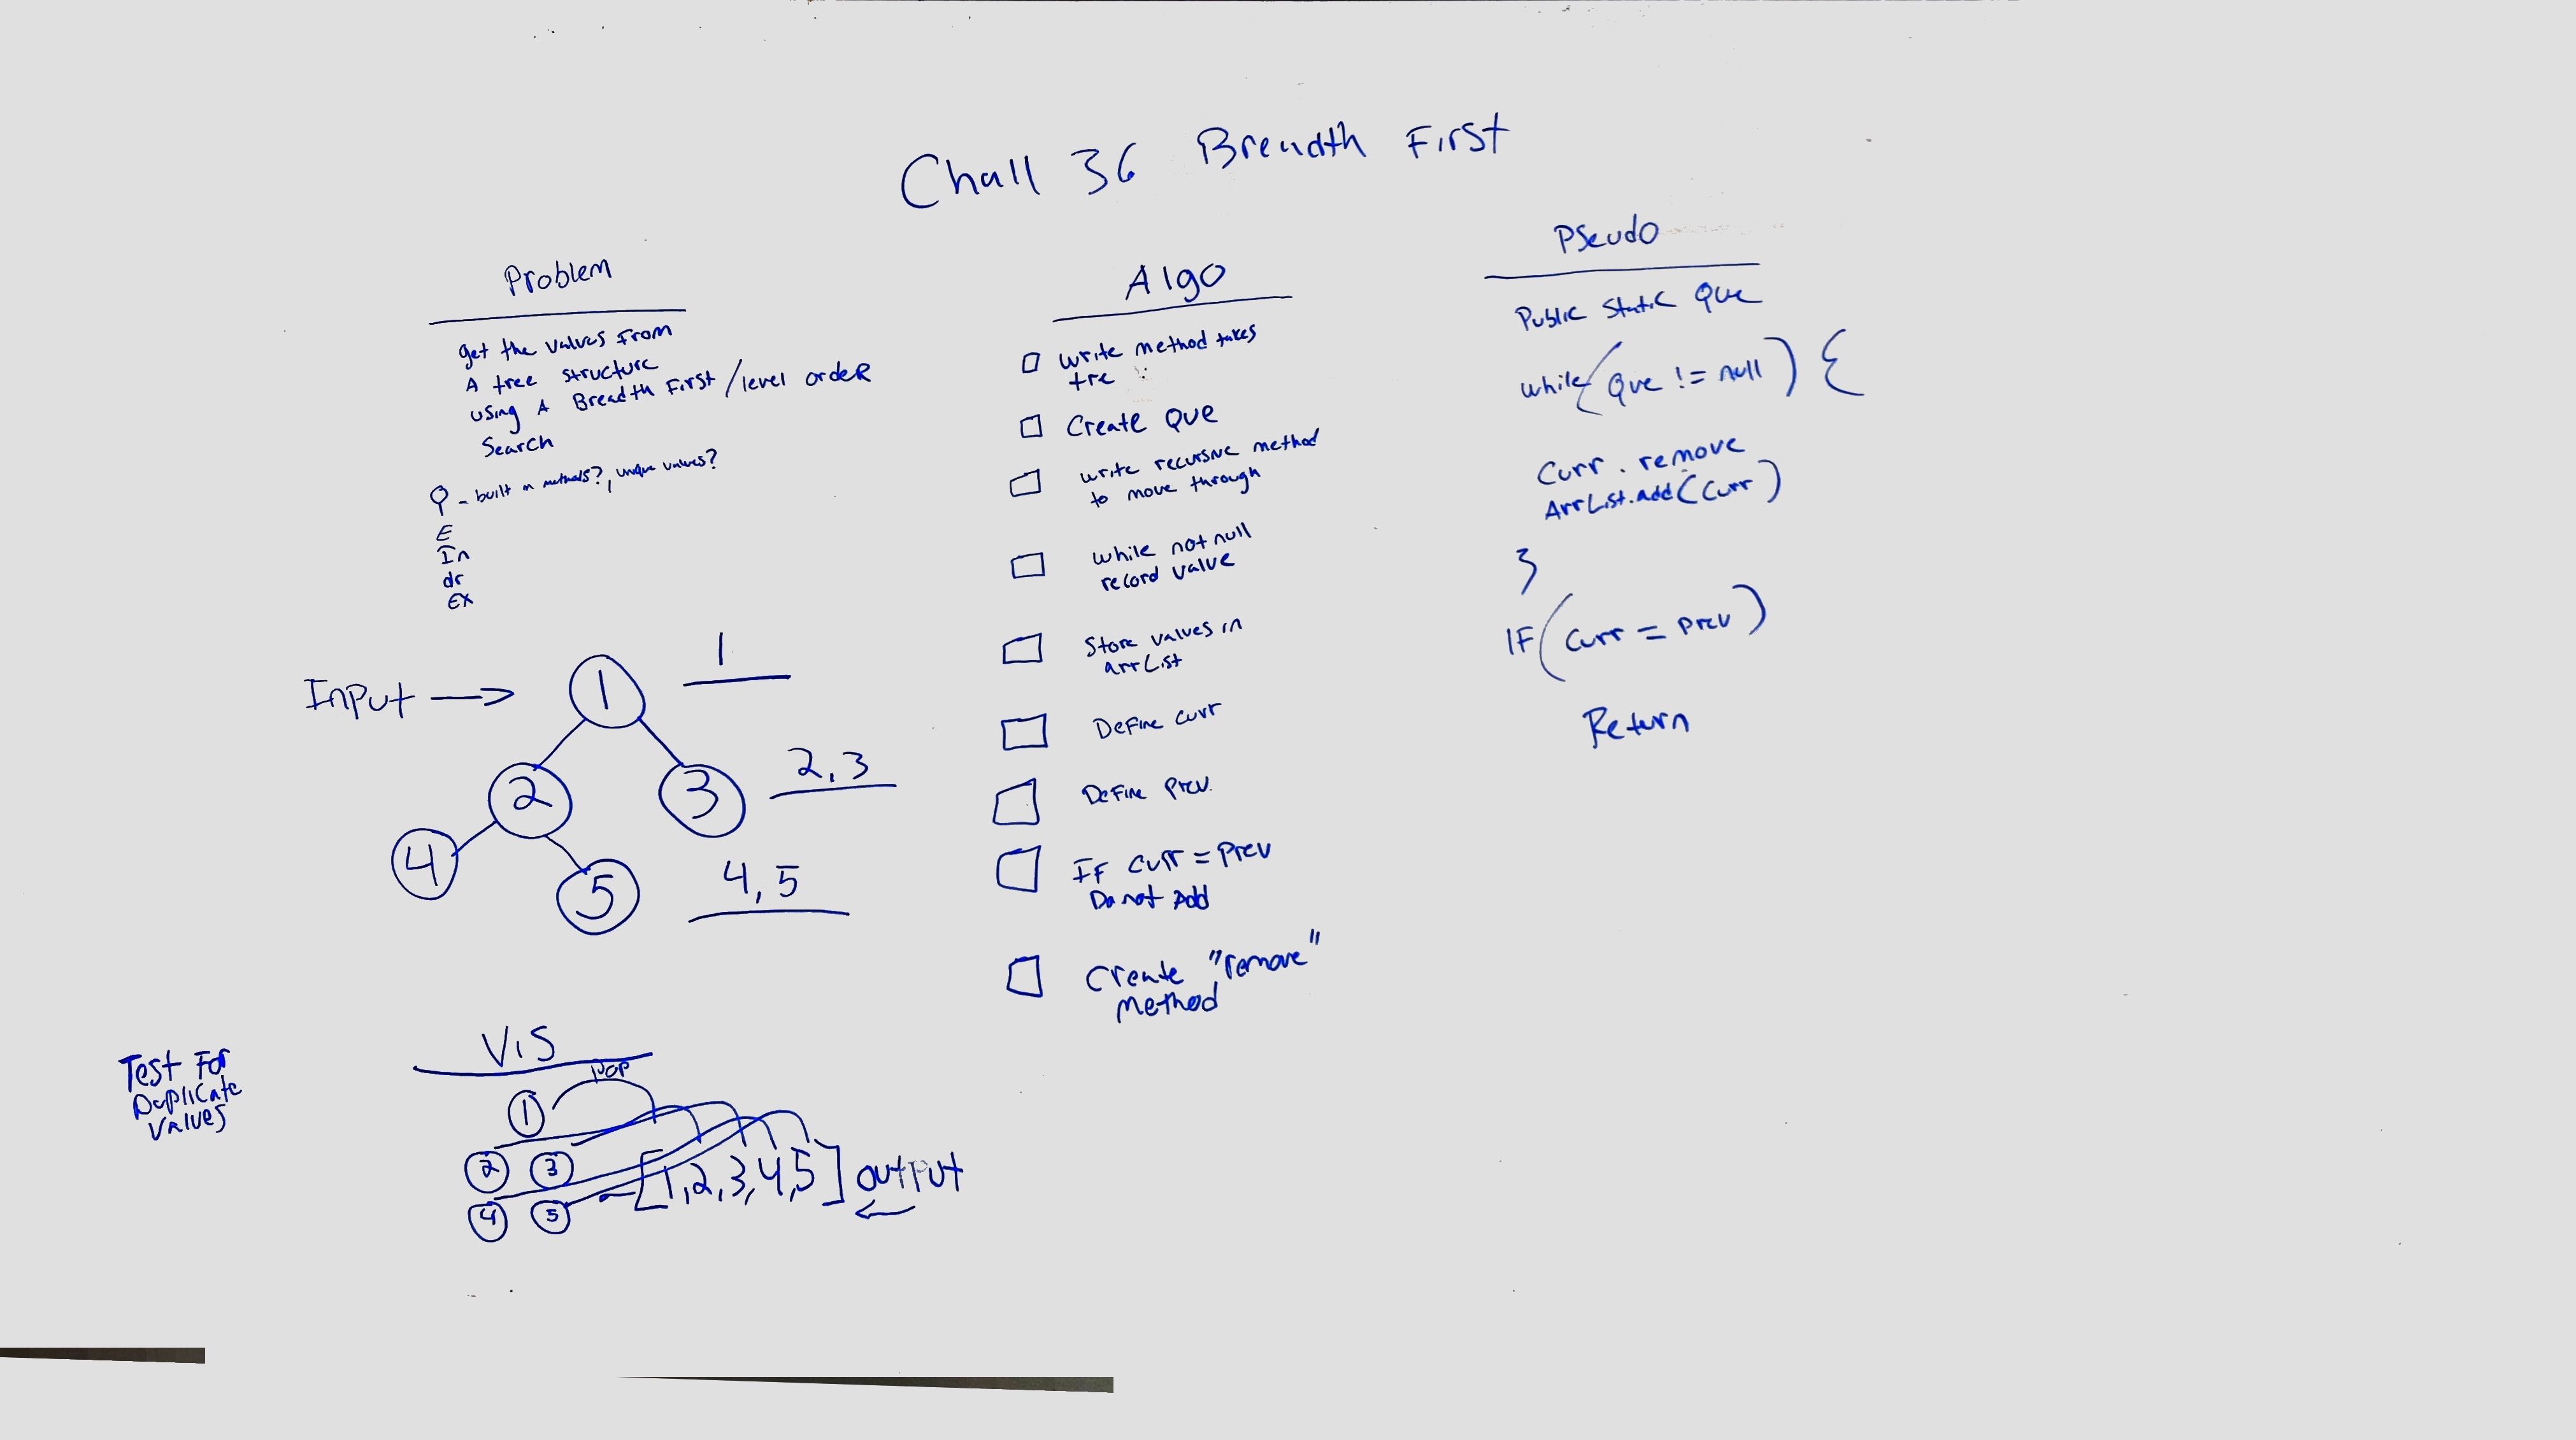 Chall 36 Breadth First
Problem
get the values from
A tree structure
using A Breadth First/level order
Search
Q - built in methods?, unique values?
E
In
dr
EX
Input →
1
2
3
4
5
1
2,3
4,5
Vis
pop
1
2 3
4 5
[1,2,3,4,5] output
Test For
Duplicate
Values
Algo
write method takes
tre
Create Que
write recursive method
to move through
while not null
record value
Store values in
arrList
Define curr
Define prev.
IF curr = prev
Do not Add
Create "remove"
method
Pseudo
Public Static Que
while(Que != null) {
Curr. remove
ArrList.add(Curr)
}
IF(curr = prev)
Return